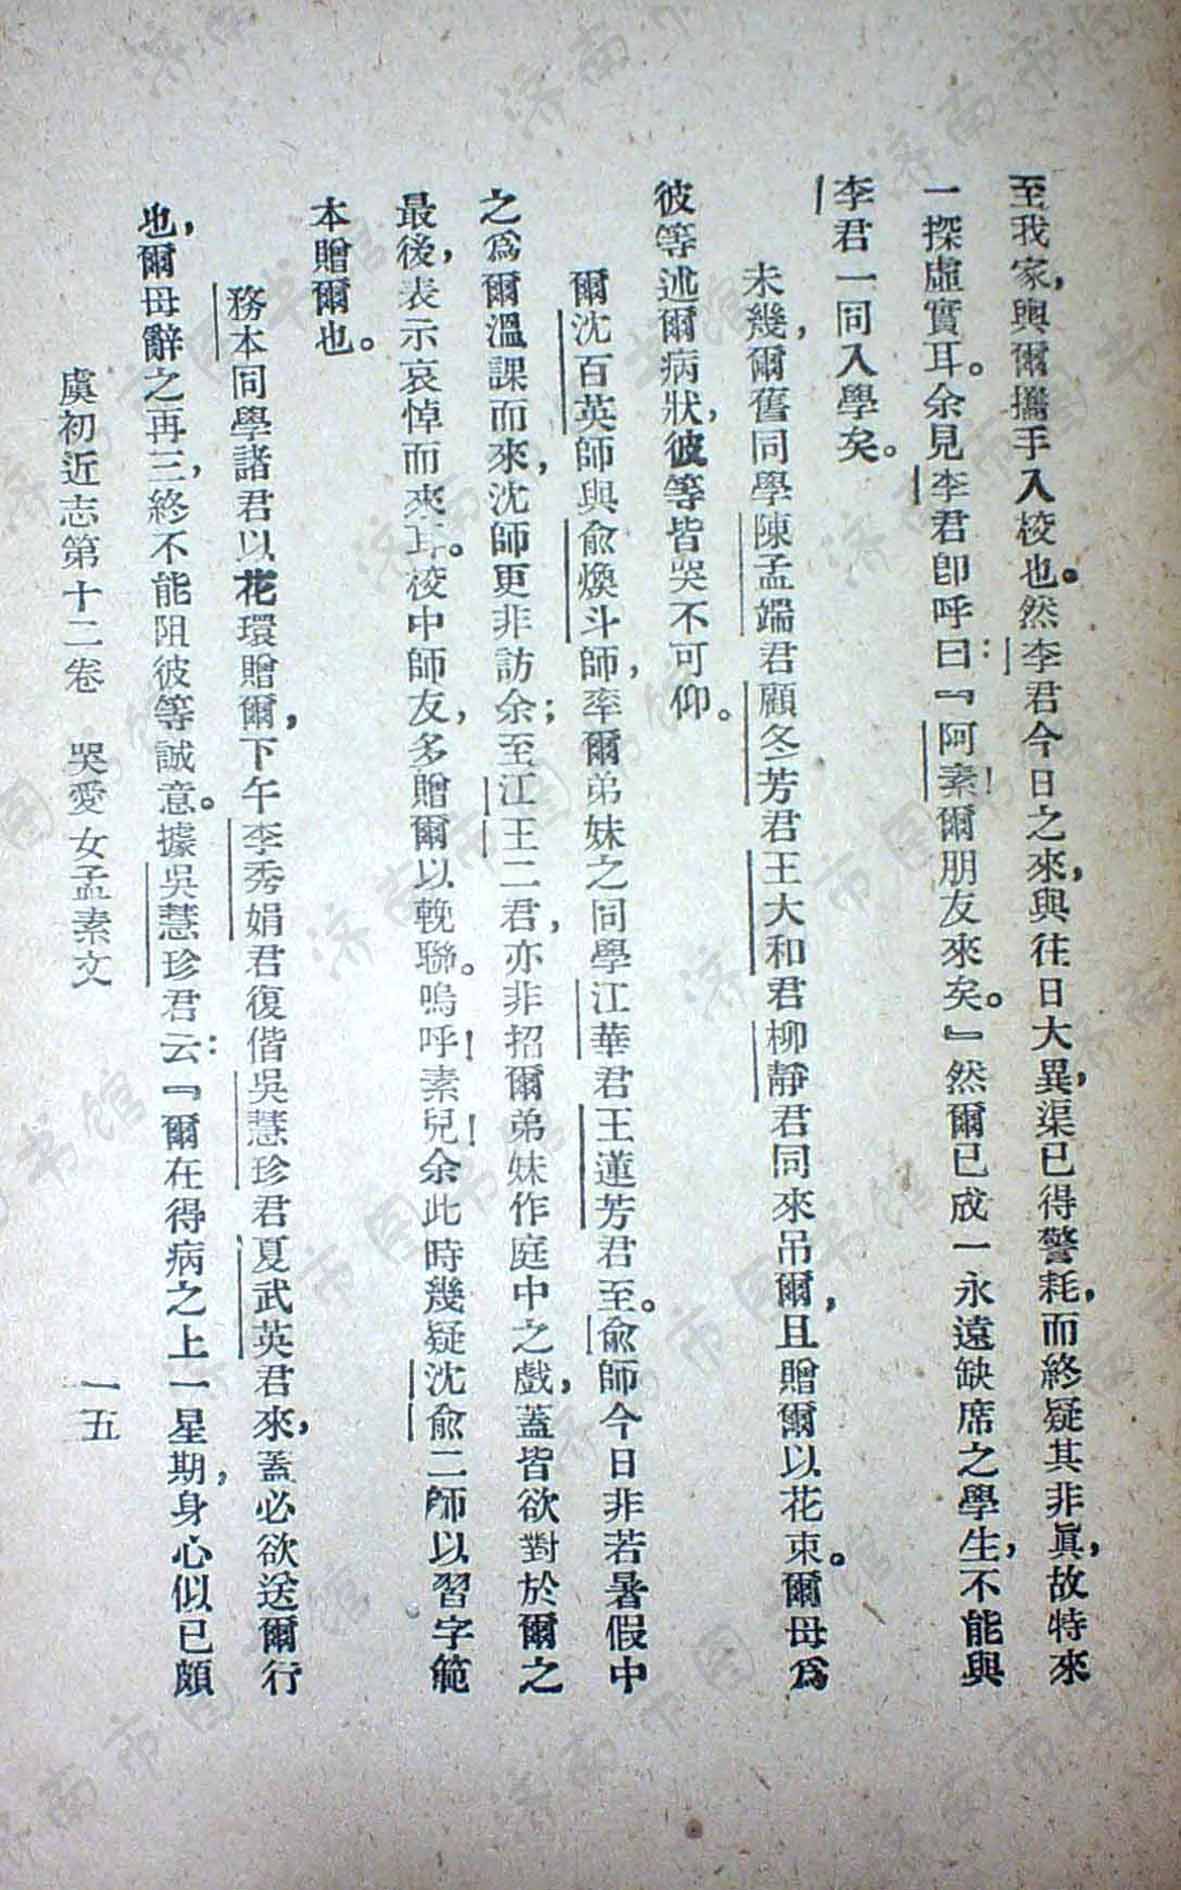 至我家，與爾攜手入校也。然李君今日之來，與往日大異，渠已得警耗，而終疑其非眞，故特來
一探虛實耳。余見李君卽呼曰：『阿素！爾朋友來矣。』然爾已成一永遠缺席之學生，不能與
李君一同入學矣。
未幾，爾舊同學陳孟端君顧冬芳君王大和君柳靜君同來吊爾，且贈爾以花束。爾母爲
彼等述爾病狀，彼等皆哭不可仰。
爾沈百英師與俞煥斗師，率爾弟妹之同學江華君王蓮芳君至。俞師今日非若暑假中
之爲爾溫課而來，沈師更非訪余；至江王二君，亦非招爾弟妹作庭中之戲，蓋皆欲對於爾之
最後，表示哀悼而來耳。校中師友，多贈爾以輓聯。嗚呼！素兒！余此時幾疑沈俞二師以習字範
本贈爾也。
務本同學諸君以花環贈爾，下午李秀娟君復偕吳慧珍君夏武英君來，蓋必欲送爾行
也，爾母辭之再三，終不能阻彼等誠意。據吳慧珍君云：『爾在得病之上一星期，身心似已頗
虞初近志第十二卷　哭愛女孟素文　一五
济南市图书馆